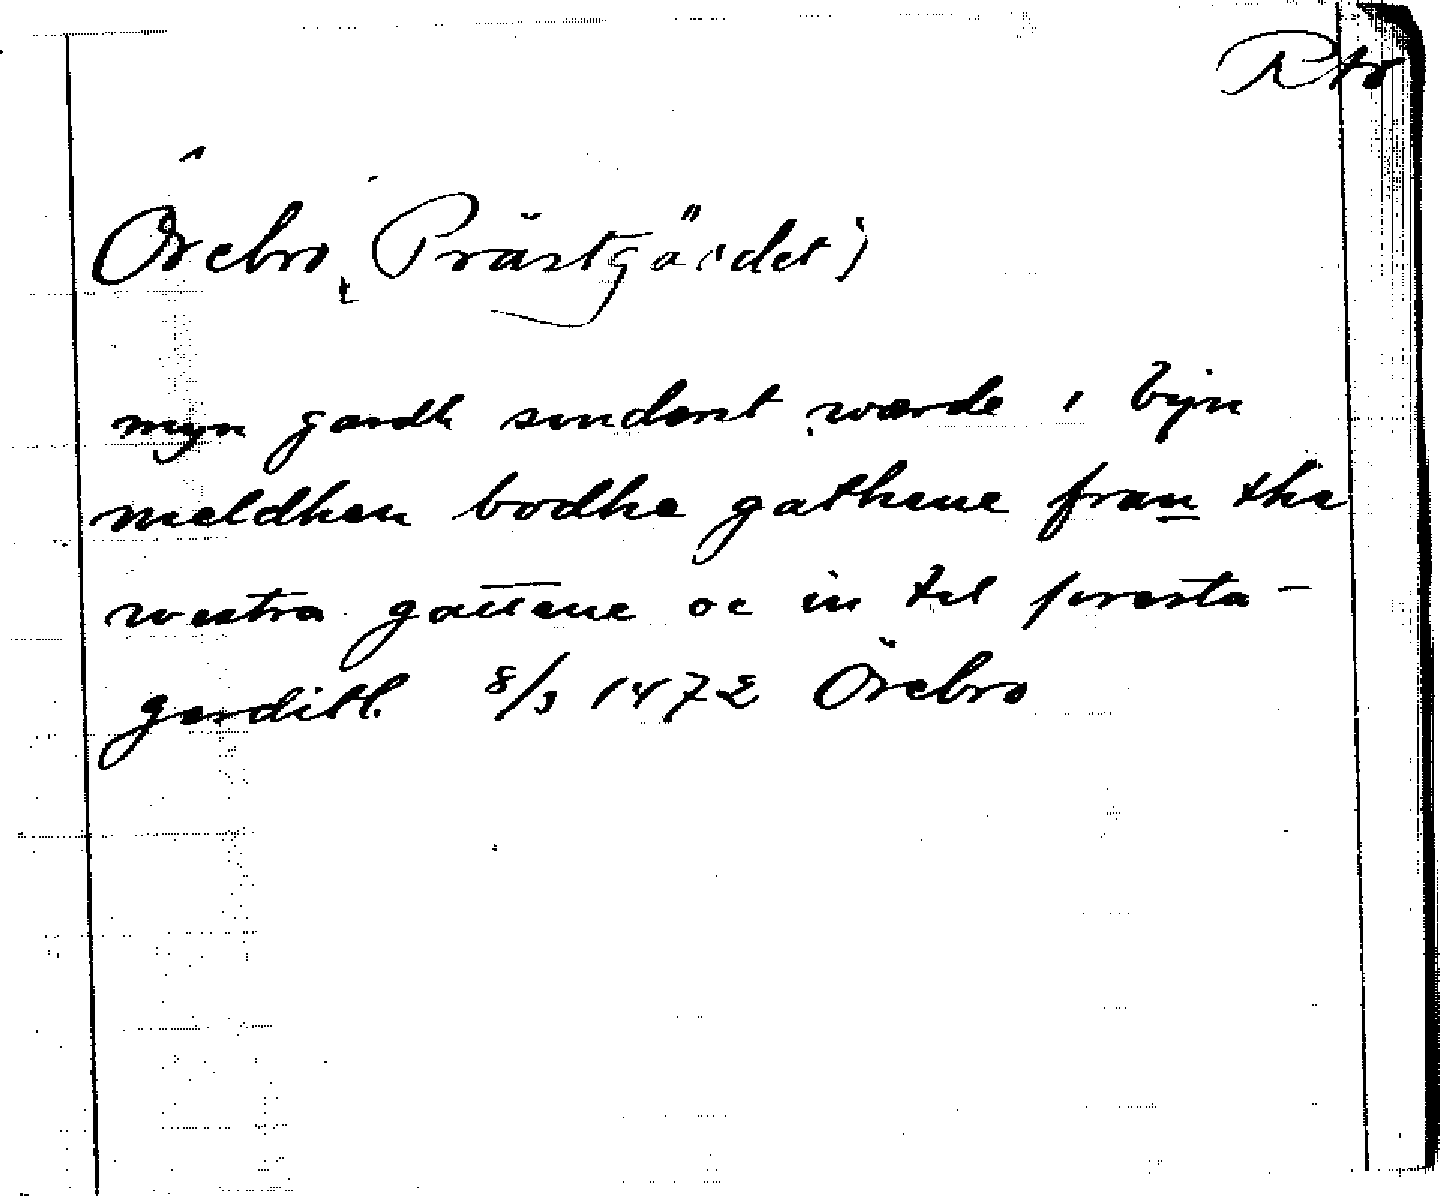 Örebro (Prästgärdet)
myn gardh sundarst warde i byn
meldhan bodhe gathene fran the
westra gattene oc in til presta-
gerdith. 8/3 1472 Örebro